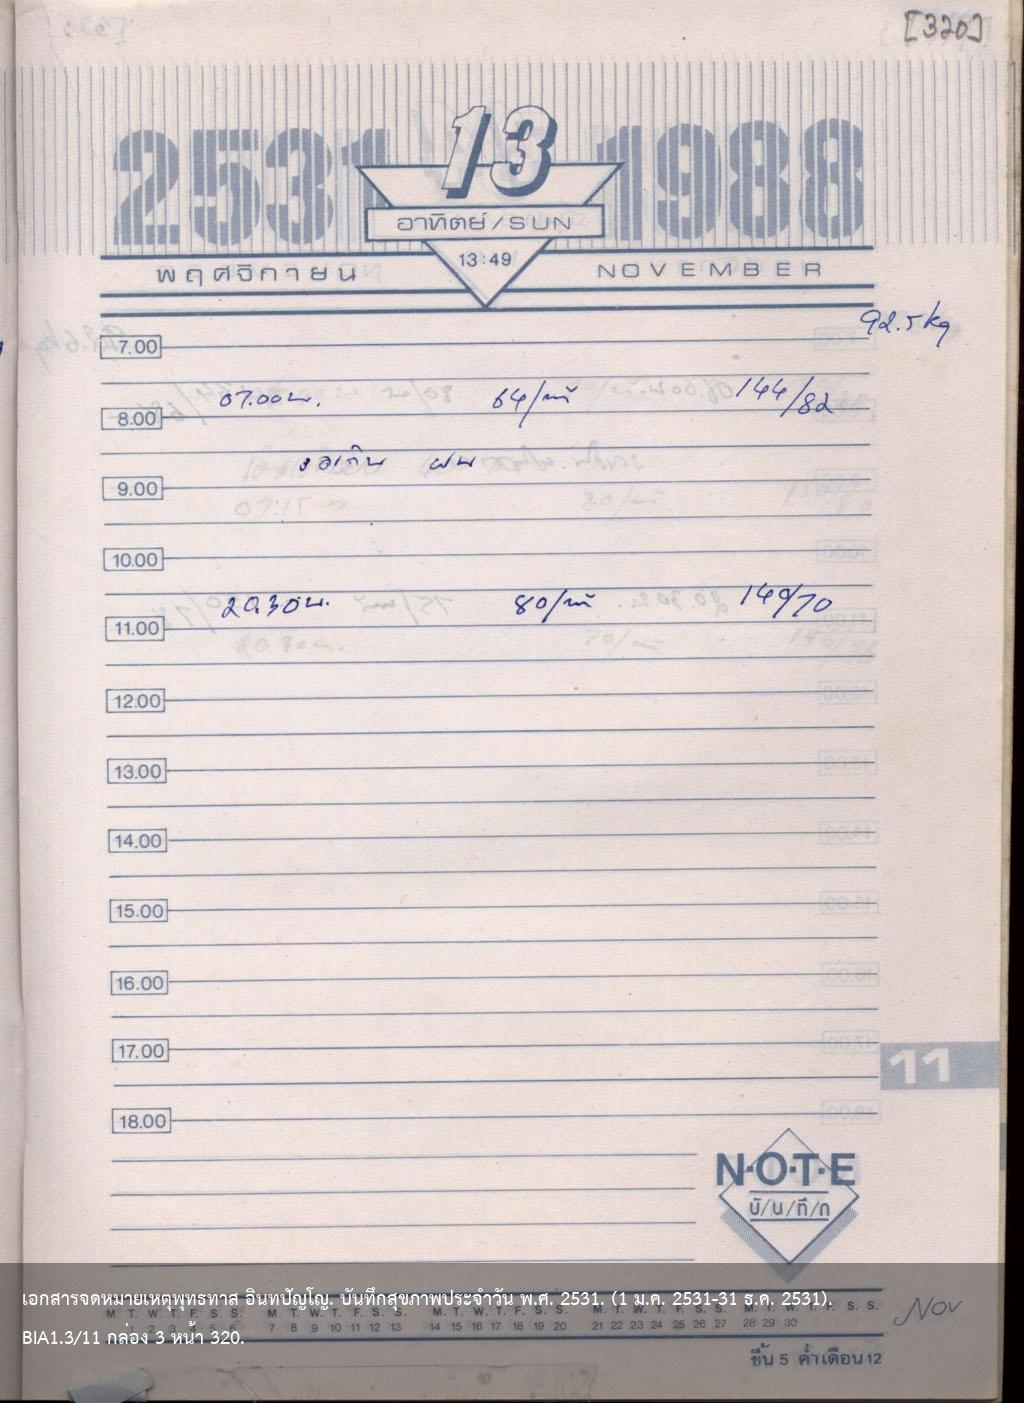 [320]
2531 13 1988
อาทิตย์/SUN
13:49
พฤศจิกายน NOVEMBER
92.5 kg
7.00
07.00น. 64/นาที 144/82
8.00
9.00
10.00
20.30น. 80/นาที 140/70
11.00
12.00
13.00
14.00
15.00
16.00
17.00
11
18.00
N·O·T·E
บั/น/ทึ/ก
เอกสารจดหมายเหตุพุทธทาส อินทปัญโญ. บันทึกสุขภาพประจำวัน พ.ศ. 2531. (1 ม.ค. 2531-31 ธ.ค. 2531).
M. T. W. T. F. S. S. M. T. W. T. F. S. S. M. T. W. T. F. S. S. M. T. W. T. F. S. S. M. T. W. T. F. S. S.
Nov
1 2 3 4 5 6 7 8 9 10 11 12 13 14 15 16 17 18 19 20 21 22 23 24 25 26 27 28 29 30
BIA1.3/11 กล่อง 3 หน้า 320.
ขึ้น 5 ค่ำ เดือน 12